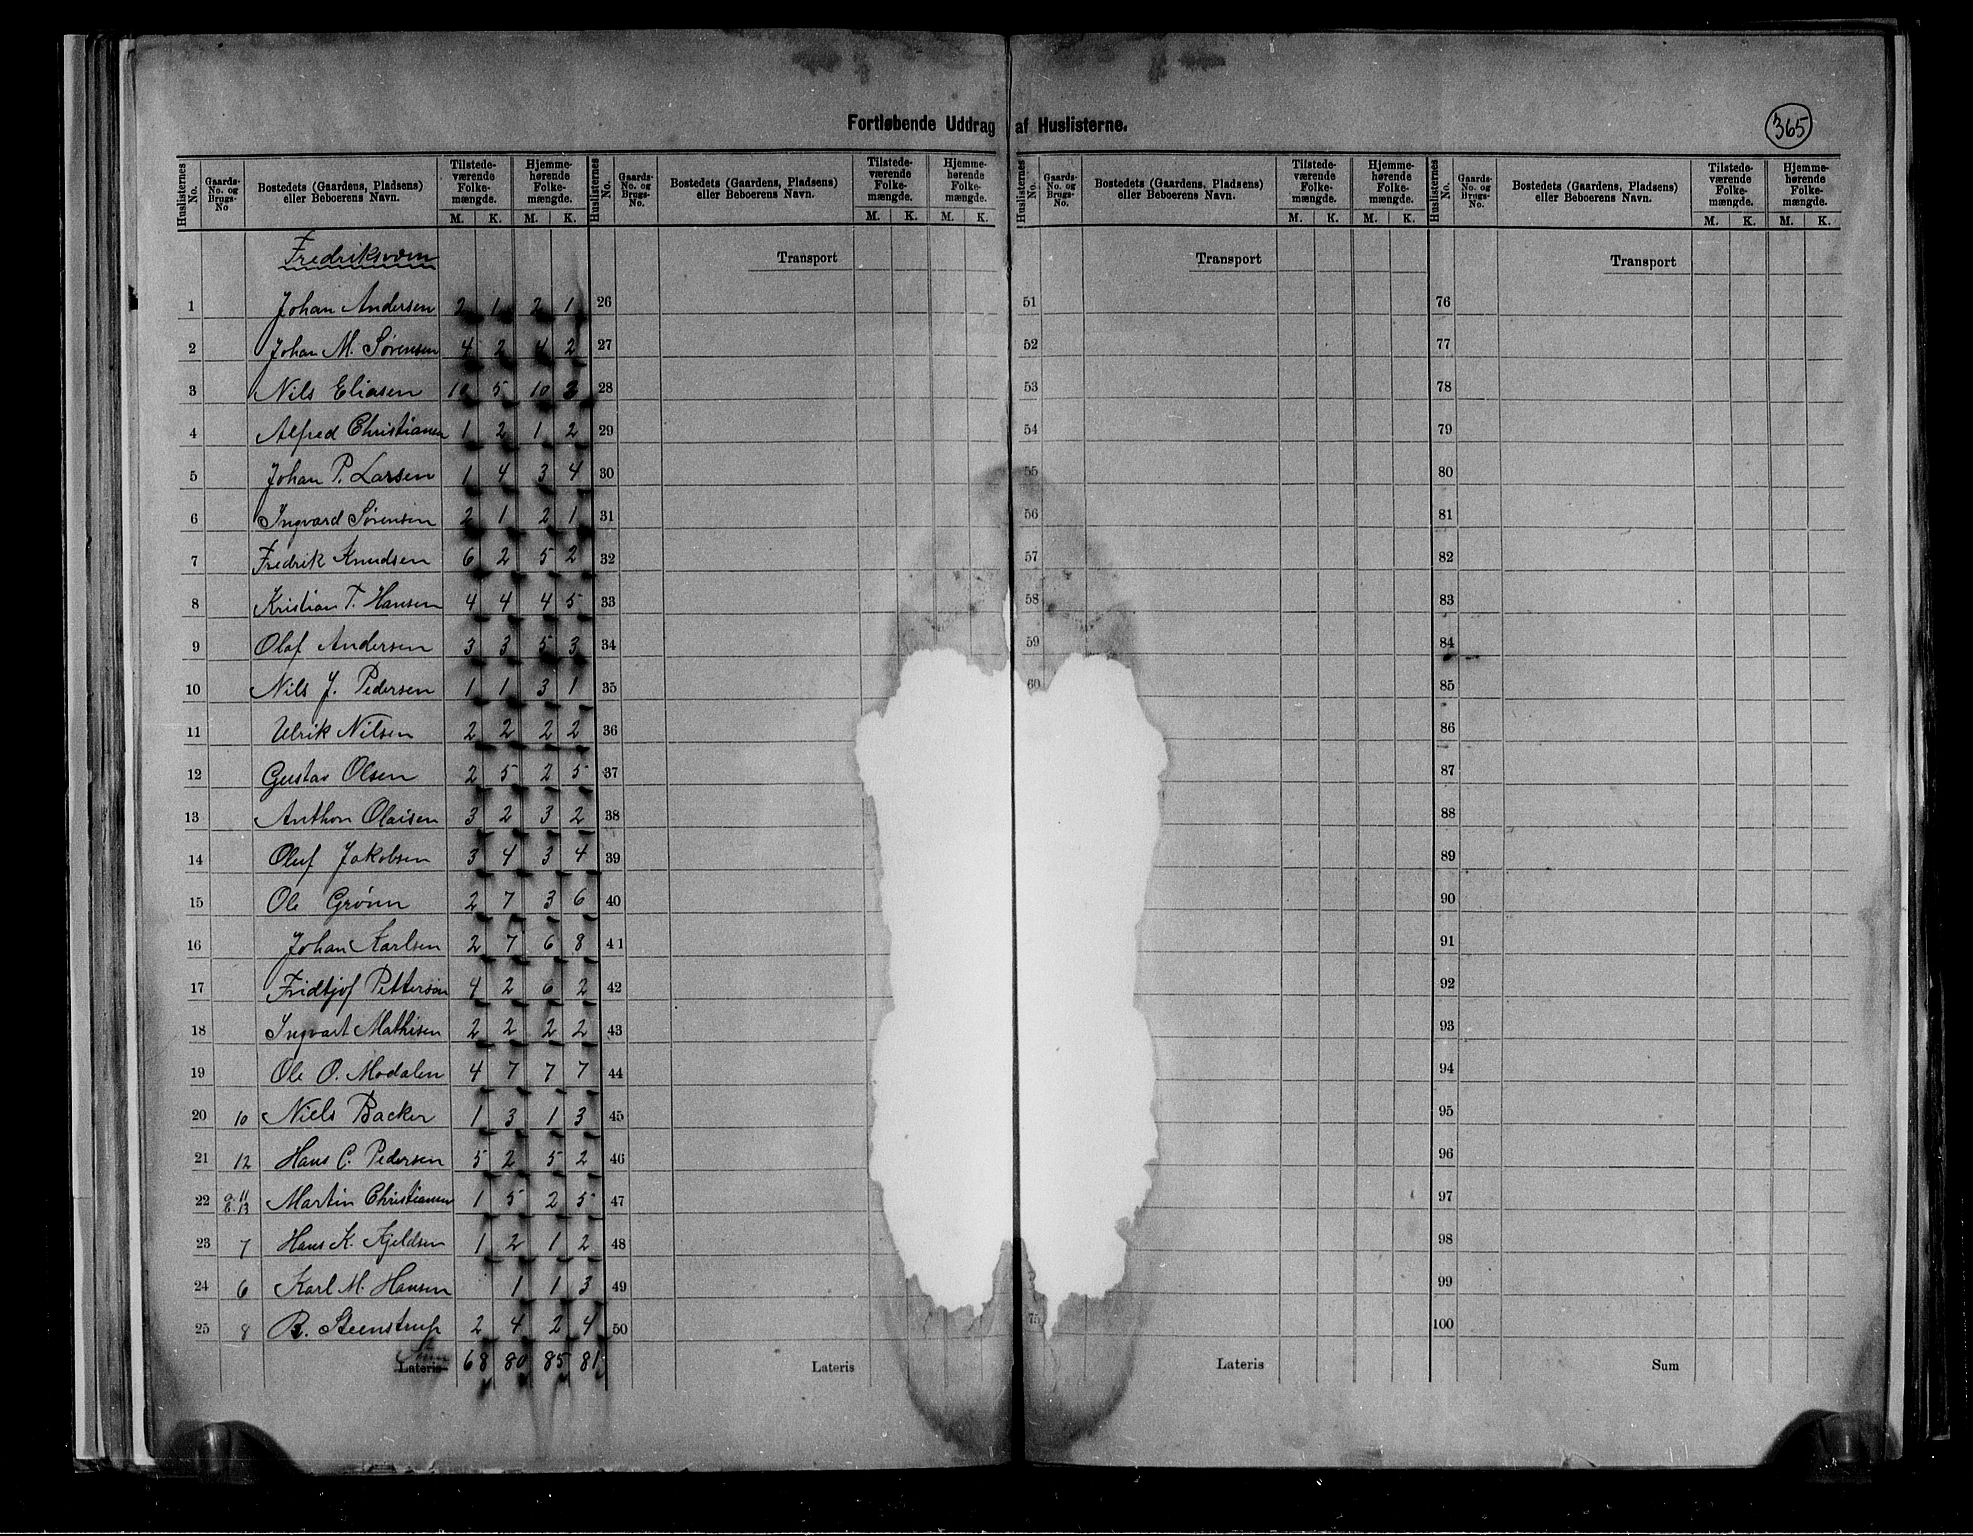 Fortløbende Uddrag af Huslisterne.
365
Huslisternes No. Gaards-No. og Brugs-No Bostedets (Gaardens, Pladsens) eller Beboerens Navn. Tilstede-værende Folke-mængde. M. K. Hjemme-hørende Folke-mængde. M. K.
Huslisternes No. Gaards-No. og Brugs-No. Bostedets (Gaardens, Pladsens) eller Beboerens Navn. Tilstede-værende Folke-mængde. M. K. Hjemme-hørende Folke-mængde. M. K.
Huslisternes No. Gaards-No. og Brugs-No. Bostedets (Gaardens, Pladsens) eller Beboerens Navn. Tilstede-værende Folke-mængde. M. K. Hjemme-hørende Folke-mængde. M. K.
Huslisternes No. Gaards-No. og Brugs-No. Bostedets (Gaardens, Pladsens) eller Beboerens Navn. Tilstede-værende Folke-mængde. M. K. Hjemme-hørende Folke-mængde. M. K.
Fredriksværn Transport Transport Transport
1 Johan Andersen 2 1 2 1 26 51 76
2 Johan M. Sørensen 4 2 4 2 27 52 77
3 Nils Eliasen 10 5 10 28 53 78
4 Alfred Christiansen 1 2 1 2 29 54 79
5 Johan P. Larsen 1 4 3 4 30 55 80
6 Ingvard Sørensen 2 1 2 1 31 56 81
7 Fredrik Knudsen 6 2 5 2 32 57 82
8 Kristian T. Hansen 4 4 4 5 33 58 83
9 Olaf Andersen 3 3 5 3 34 59 84
10 Nils J. Pedersen 1 1 3 1 35 60 85
11 Ulrik Nilsen 2 2 2 2 36 86
12 Gustav Olsen 2 5 2 5 37 87
13 Anthon Olaisen 3 2 3 2 38 88
14 Oluf Jakobsen 3 4 3 4 39 89
15 Ole Grønn 2 7 3 6 40 90
16 Johan Karlsen 2 7 6 8 41 91
17 Fridtjof Pettersen 4 2 6 2 42 92
18 Ingvart Mathisen 2 2 2 2 43 93
19 Ole O. Modalen 4 7 7 7 44 94
20 10 Niels Backer 1 3 1 3 45 95
21 12 Hans C. Pedersen 5 2 5 2 46 96
22 9.11 &.13 Martin Christiansen 1 5 2 5 47 97
23 7 Hans K. Kjeldsen 1 2 1 2 48 98
24 6 Karl M. Hansen 1 1 3 49 99
25 8 B. Steenstrup 2 4 2 4 50 75 100
Sum Lateris 68 80 85 81 Lateris Lateris Sum